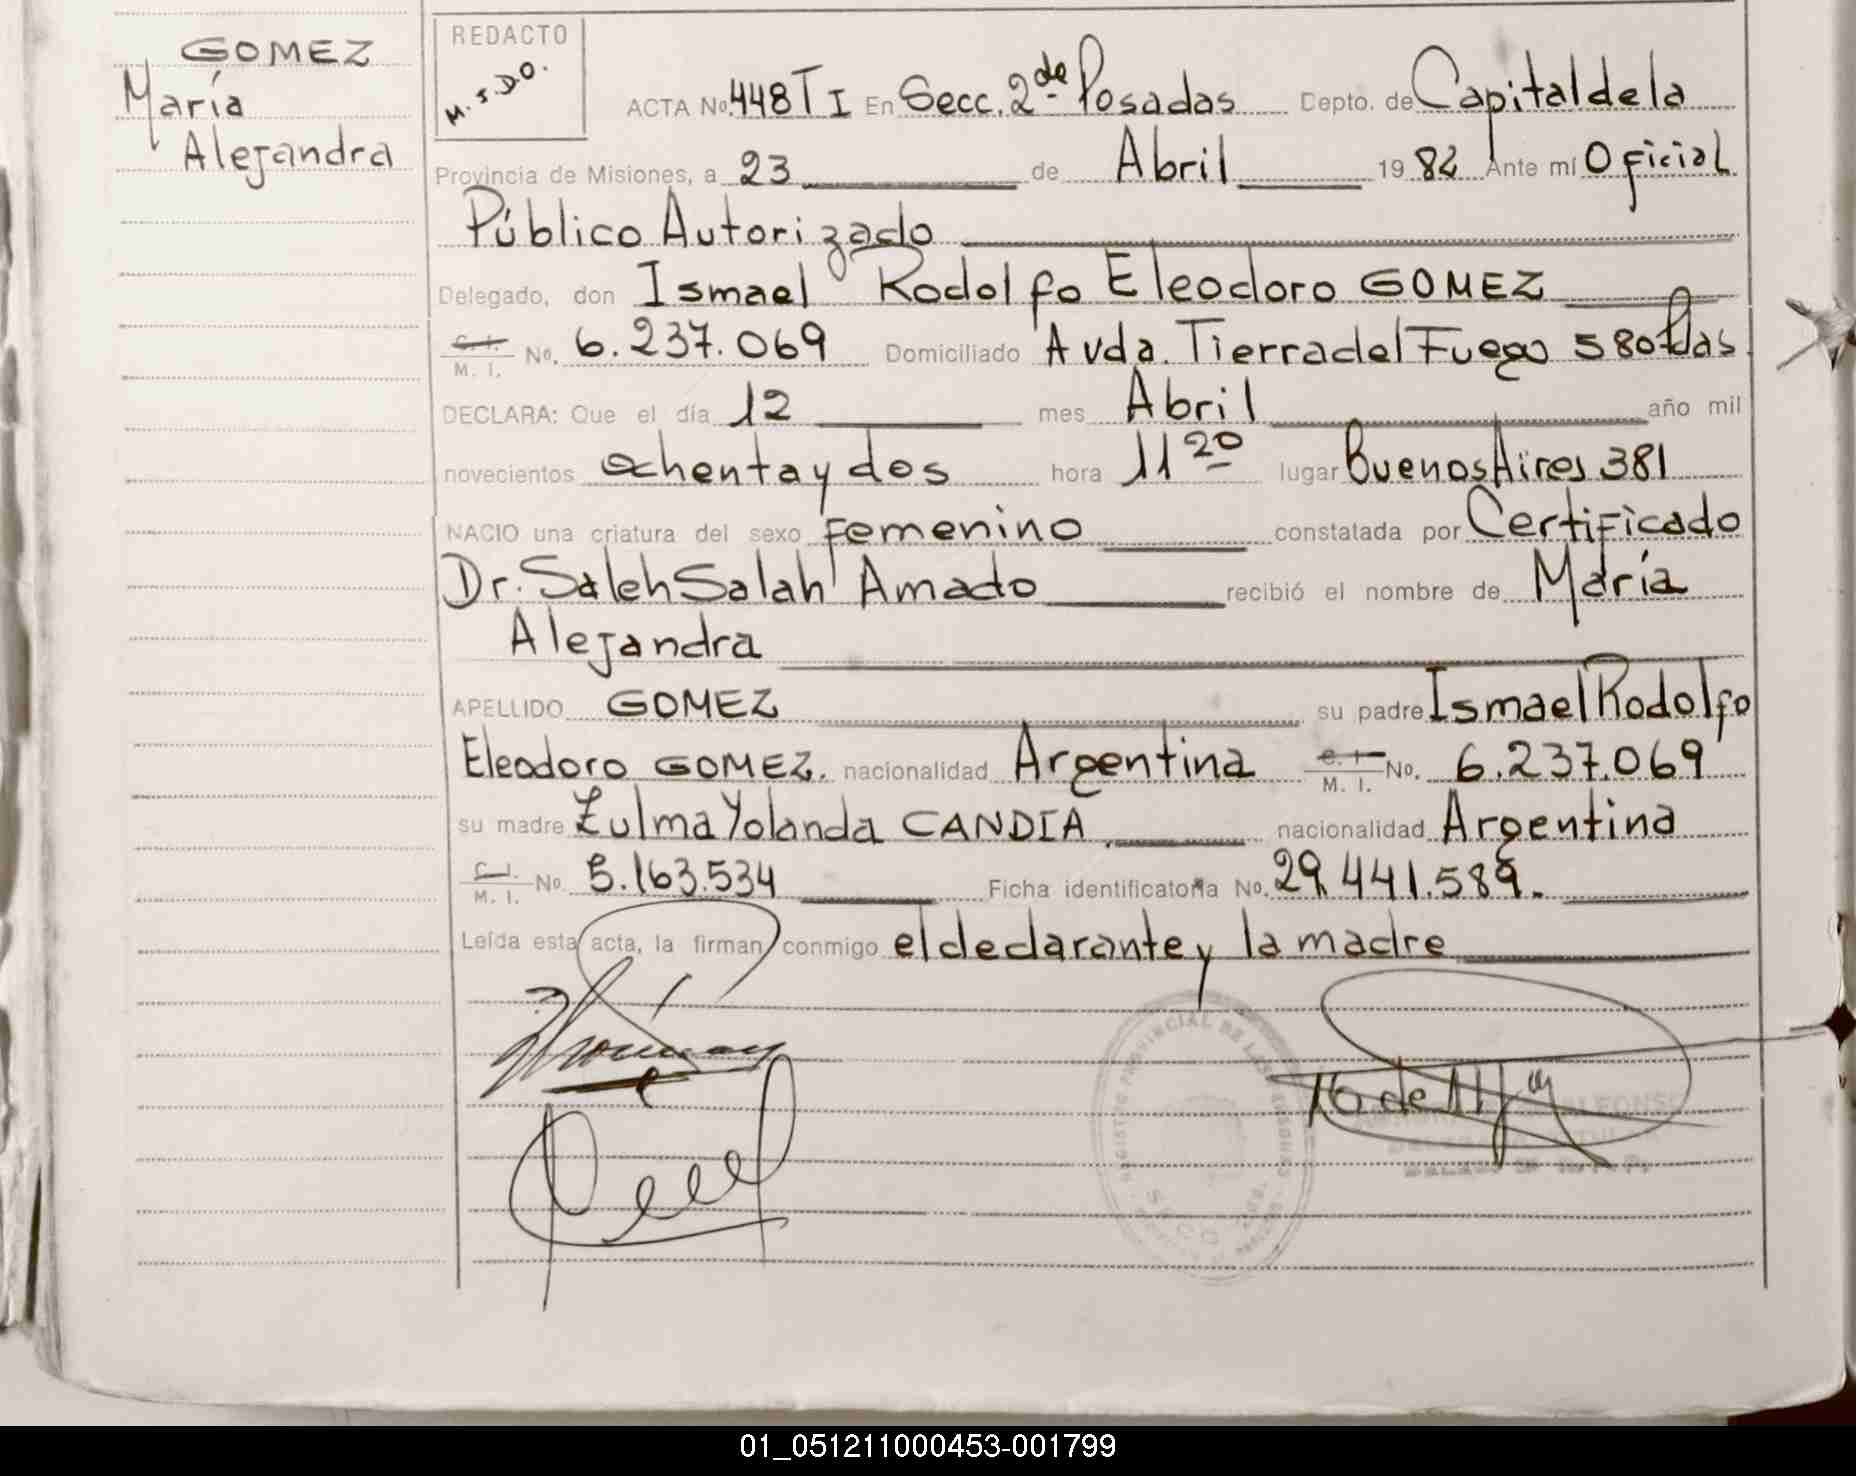 GOMEZ
María
Alejandra
REDACTO
M.S.D.O.
ACTA No. 448 T I En Secc. 2da Posadas Depto. de Capital de la
Provincia de Misiones, a 23 de Abril 1982 Ante mí Oficial
Público Autorizado
Delegado, don Ismael Rodolfo Eleodoro GOMEZ
C. I. / M. I. No. 6.237.069 Domiciliado Avda. Tierra del Fuego 580 Pdas
DECLARA: Que el día 12 mes Abril año mil
novecientos ochenta y dos hora 11 20 lugar Buenos Aires 381
NACIO una criatura del sexo femenino constatada por Certificado
Dr. Saleh Salah Amado recibió el nombre de María
Alejandra
APELLIDO GOMEZ su padre Ismael Rodolfo
Eleodoro GOMEZ. nacionalidad Argentina C. I. / M. I. No. 6.237.069
su madre Zulma Yolanda CANDIA nacionalidad Argentina
C. I. / M. I. No. 5.163.534 Ficha identificatoria No. 29.441.589.
Leída esta acta, la firman conmigo el declarante y la madre
REGISTRO PROVINCIAL DE LAS PERSONAS
01_051211000453-001799